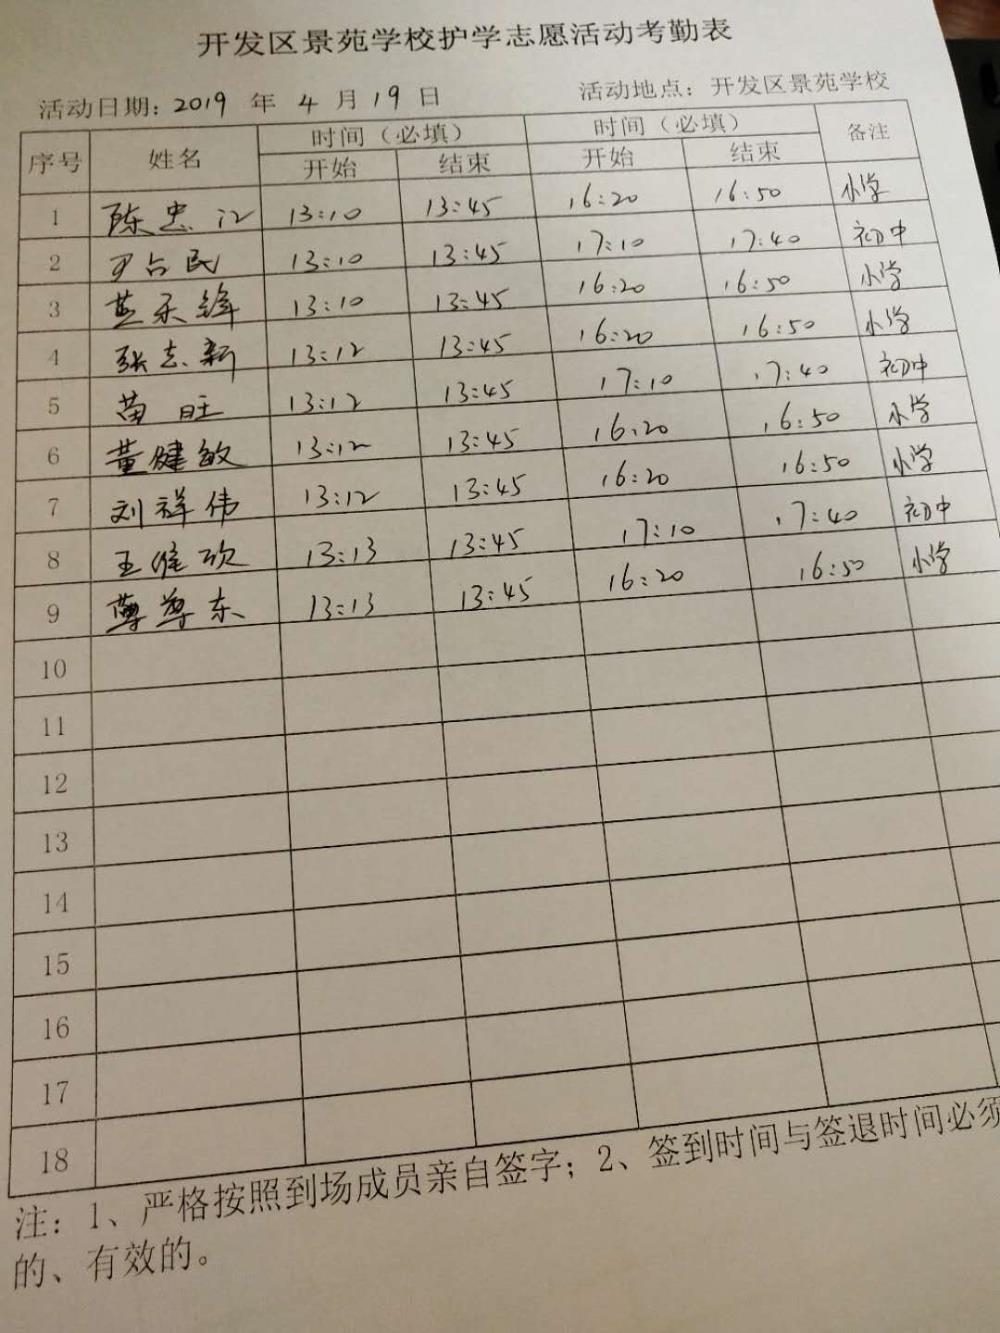 开发区景苑学校护学志愿活动考勤表
活动日期: 2019 年 4 月 19 日 活动地点: 开发区景苑学校
序号 姓名 时间（必填） 时间（必填） 备注
开始 结束 开始 结束
1 陈忠江 13:10 13:45 16:20 16:50 小学
2 尹占民 13:10 13:45 17:10 17:40 初中
3 13:10 13:45 16:20 16:50 小学
4 张志新 13:12 13:45 16:20 16:50 小学
5 苗旺 13:12 13:45 17:10 17:40 初中
6 董健敏 13:12 13:45 16:20 16:50 小学
7 刘祥伟 13:12 13:45 16:20 16:50 小学
8 王 13:13 13:45 17:10 17:40 初中
9 13:13 13:45 16:20 16:50 小学
10
11
12
13
14
15
16
17
18
注: 1、严格按照到场成员亲自签字; 2、签到时间与签退时间必须
的、有效的。